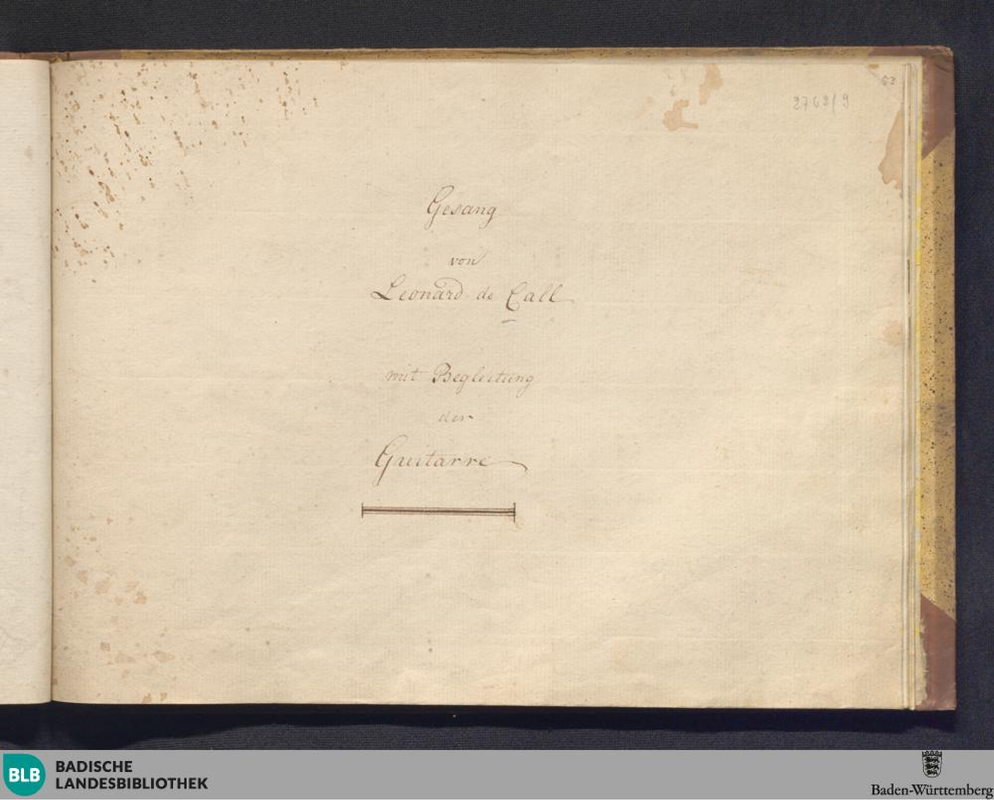 63
2769/9
Gesang
von
Leonard de Call
mit Begleitung
der
Guitarre
BLB BADISCHE
LANDESBIBLIOTHEK
Baden-Württemberg